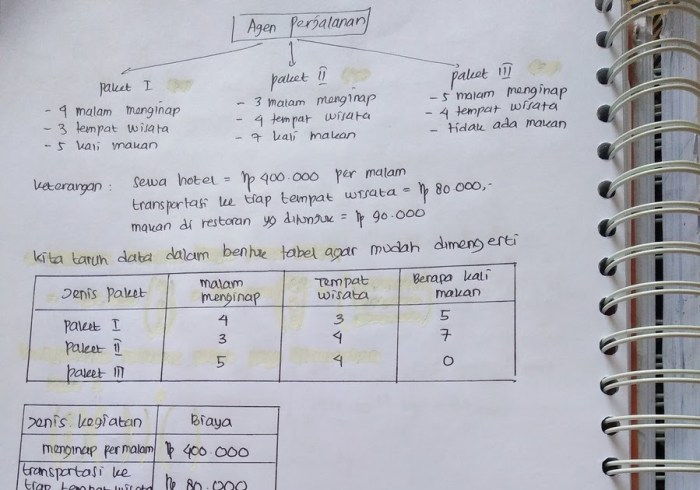 Agen Perjalanan
paket I
- 4 malam menginap
- 3 tempat wisata
- 5 kali makan
paket II
- 3 malam menginap
- 4 tempat wisata
- 7 kali makan
paket III
- 5 malam menginap
- 4 tempat wisata
- tidak ada makan
keterangan : sewa hotel = Rp 400.000 per malam
transportasi ke tiap tempat wisata = Rp 80 000,-
makan di restoran yg ditunjuk = Rp 90.000
kita taruh data dalam bentuk tabel agar mudah dimengerti
Jenis paket malam menginap Tempat wisata Berapa kali makan
paket I 4 3 5
paket II 3 4 7
paket III 5 4 0
Jenis kegiatan Biaya
menginap per malam Rp 400.000
transportasi ke
tiap tempat wisata Rp 80.000